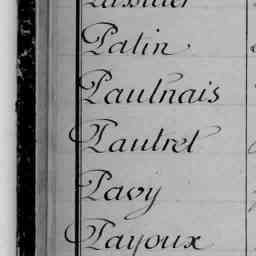 Patin
Paulnais
Pautret
Pavy
Payoux